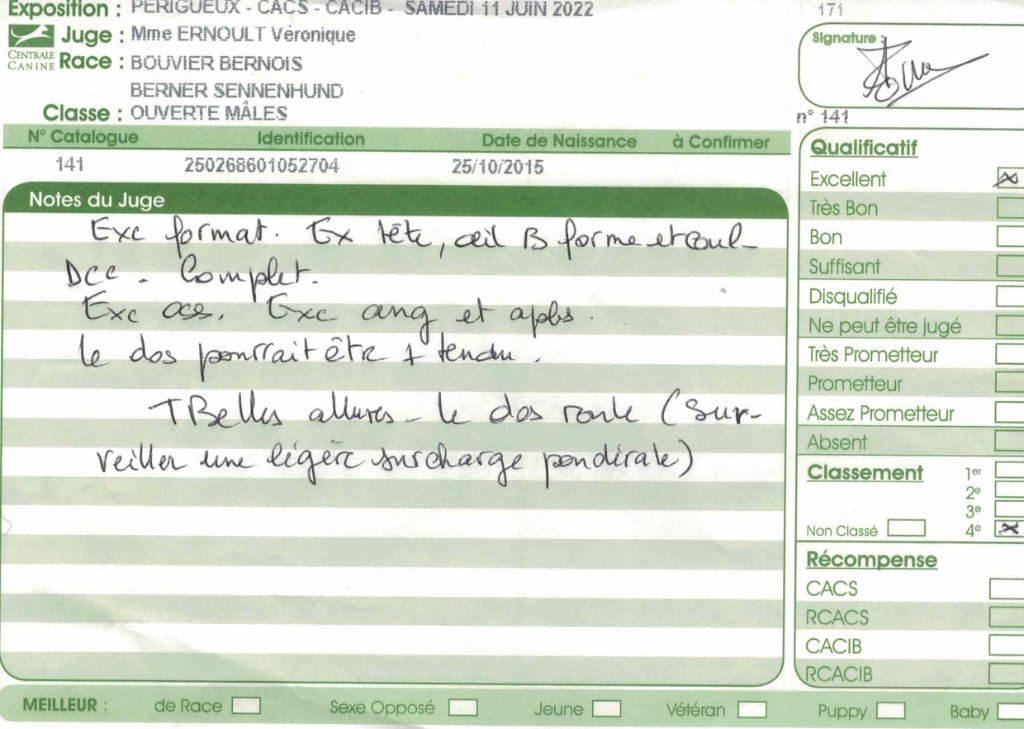 Exposition : PERIGUEUX - CACS - CACIB - SAMEDI 11 JUIN 2022
171
Juge : Mme ERNOULT Véronique
CENTRALE CANINE
Race : BOUVIER BERNOIS
BERNER SENNENHUND
Classe : OUVERTE MÂLES
Signature :
n° 141
N° Catalogue Identification Date de Naissance à Confirmer
141 250268601052704 25/10/2015
Notes du Juge
Exc format. Ex tête, œil B forme et coul-
Dcc. Complet.
Exc oss. Exc ang et aplbs.
le dos pourrait être + tendu.
TBelles allures - le dos roule (sur-
veiller une légère surcharge pondérale)
Qualificatif
Excellent
Très Bon
Bon
Suffisant
Disqualifié
Ne peut être jugé
Très Prometteur
Prometteur
Assez Prometteur
Absent
Classement 1er
2e
3e
Non Classé 4e
Récompense
CACS
RCACS
CACIB
RCACIB
MEILLEUR : de Race Sexe Opposé Jeune Vétéran Puppy Baby